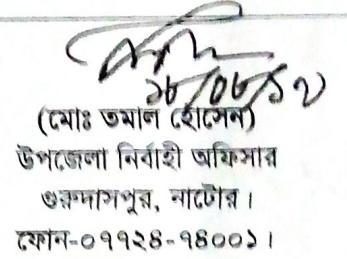 ১৮/০৮/১৭
(মোঃ তমাল হোসেন)
উপজেলা নির্বাহী অফিসার
গুরুদাসপুর, নাটোর।
ফোন-০৭৭২৪-৭৪০০১।